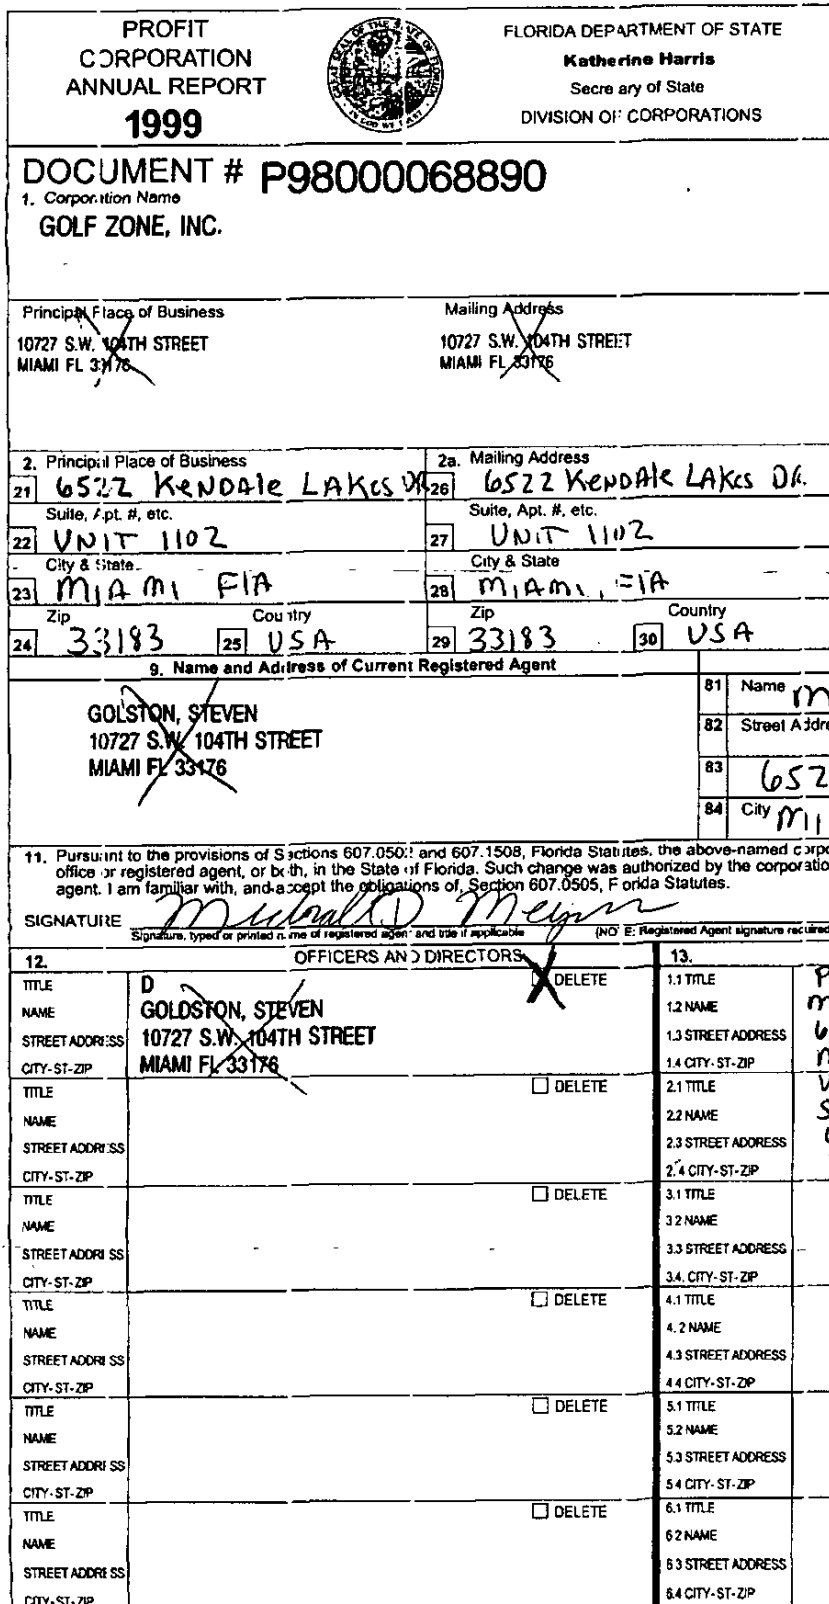 PROFIT
CORPORATION
ANNUAL REPORT
1999
FLORIDA DEPARTMENT OF STATE
Katherine Harris
Secretary of State
DIVISION OF CORPORATIONS
DOCUMENT # P98000068890
1. Corporation Name
GOLF ZONE, INC.
Principal Place of Business
10727 S.W. 104TH STREET
MIAMI FL 33176
Mailing Address
10727 S.W. 104TH STREET
MIAMI FL 33176
2. Principal Place of Business
21 6522 KENDAlE LAKES DR
Suite, Apt. #, etc.
22 UNIT 1102
City & State
23 MIAMI FlA
Zip Country
24 33183 25 USA
2a. Mailing Address
26 6522 KENDAlE LAKES DR.
Suite, Apt. #, etc.
27 UNIT 1102
City & State
28 MIAMI, FlA
Zip Country
29 33183 30 USA
9. Name and Address of Current Registered Agent
GOLSTON, STEVEN
10727 S.W. 104TH STREET
MIAMI FL 33176
81 Name M
82 Street Addre
83 652
84 City MI
11. Pursuant to the provisions of Sections 607.0502 and 607.1508, Florida Statutes, the above-named corpo
office or registered agent, or both, in the State of Florida. Such change was authorized by the corporatio
agent. I am familiar with, and accept the obligations of, Section 607.0505, Florida Statutes.
SIGNATURE
Signature, typed or printed name of registered agent and title if applicable (NOTE: Registered Agent signature required
12. OFFICERS AND DIRECTORS 13.
TITLE D DELETE
NAME GOLDSTON, STEVEN
STREET ADDRESS 10727 S.W. 104TH STREET
CITY-ST-ZIP MIAMI FL 33176
TITLE DELETE
NAME
STREET ADDRESS
CITY-ST-ZIP
TITLE DELETE
NAME
STREET ADDRESS
CITY-ST-ZIP
TITLE DELETE
NAME
STREET ADDRESS
CITY-ST-ZIP
TITLE DELETE
NAME
STREET ADDRESS
CITY-ST-ZIP
TITLE DELETE
NAME
STREET ADDRESS
CITY-ST-ZIP
1.1 TITLE P
1.2 NAME M
1.3 STREET ADDRESS 6
1.4 CITY-ST-ZIP M
2.1 TITLE V
2.2 NAME S
2.3 STREET ADDRESS
2.4 CITY-ST-ZIP
3.1 TITLE
3.2 NAME
3.3 STREET ADDRESS
3.4. CITY-ST-ZIP
4.1 TITLE
4.2 NAME
4.3 STREET ADDRESS
4.4 CITY-ST-ZIP
5.1 TITLE
5.2 NAME
5.3 STREET ADDRESS
5.4 CITY-ST-ZIP
6.1 TITLE
6.2 NAME
6.3 STREET ADDRESS
6.4 CITY-ST-ZIP